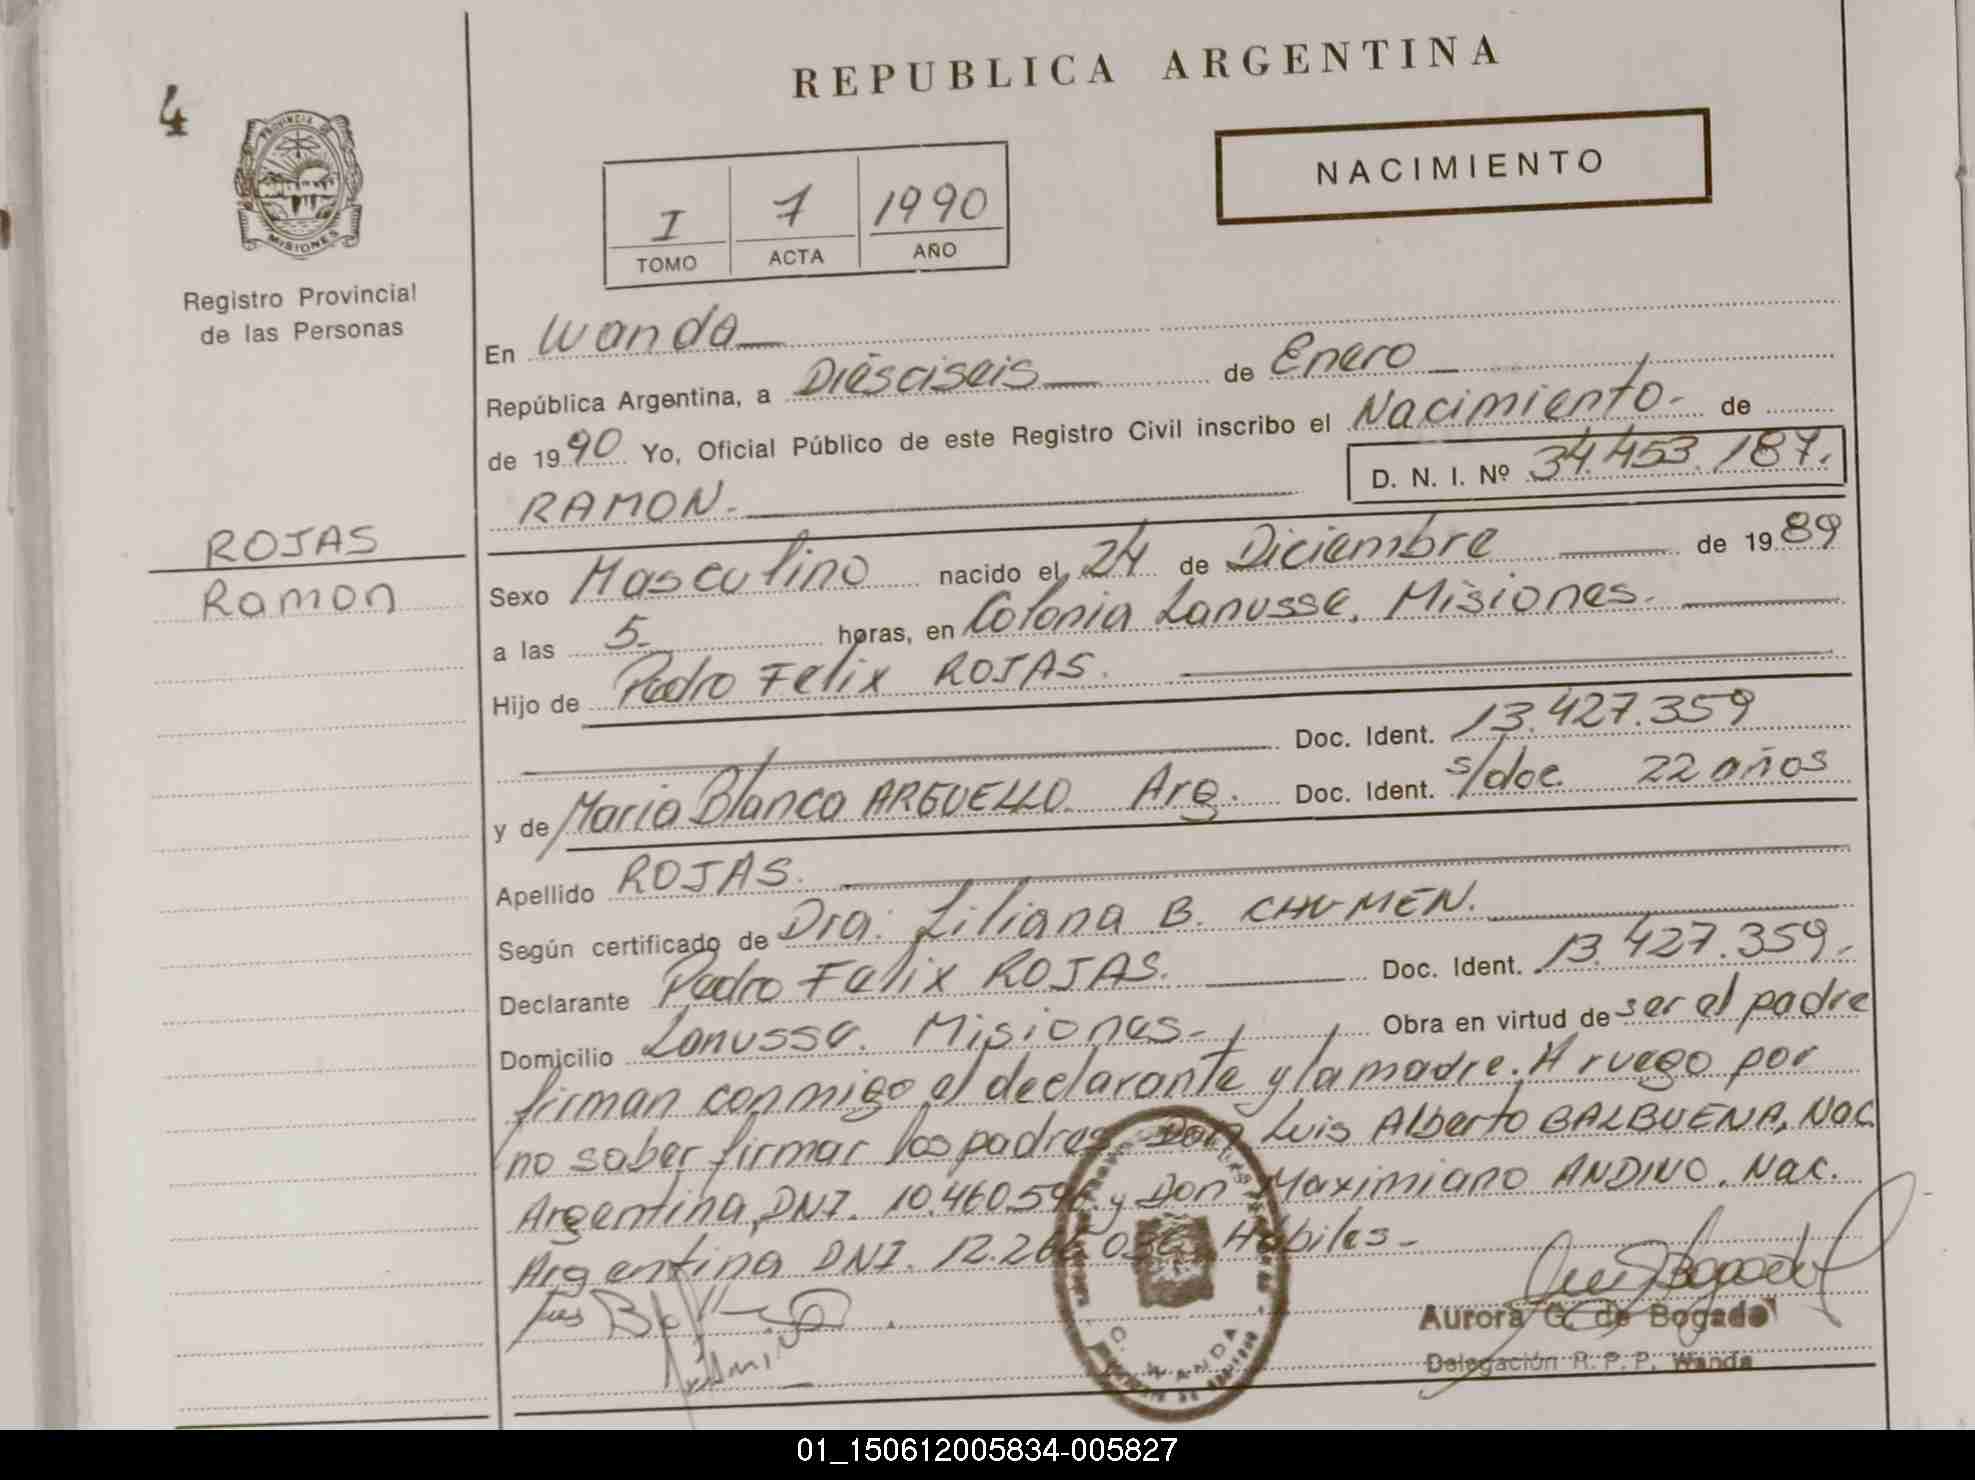 REPUBLICA ARGENTINA
4
PROVINCIA DE
MISIONES
NACIMIENTO
I 7 1990
TOMO ACTA AÑO
Registro Provincial
de las Personas
En Wanda
República Argentina, a Diésciseis de Enero
de 1990 Yo, Oficial Público de este Registro Civil inscribo el Nacimiento- de
D. N. I. Nº 34.453.187.
RAMON.
ROJAS
Ramon
Sexo Masculino nacido el 24 de Diciembre de 1989
a las 5- horas, en Colonia Lanusse, Misiones.
Hijo de Pedro Felix ROJAS.
Doc. Ident. 13.427.359
y de Maria Blanca ARGUELLO Arg. Doc. Ident. s/doc. 22 años
Apellido ROJAS.
Según certificado de Dra. Liliana B.
Declarante Pedro Felix ROJAS. Doc. Ident. 13.427.359.
Domicilio Lanusse. Misiones- Obra en virtud de ser el padre
firman conmigo el declarante y la madre. A ruego por
no saber firmar los padres Don Luis Alberto BALBUENA, Nac.
Argentina, DNI. y Don Maximiano ANDINO. Nac.
Argentina DNI. Hábiles-
Aurora G. de Bogado
Delegación R. P. P. Wanda
WANDA
01_150612005834-005827